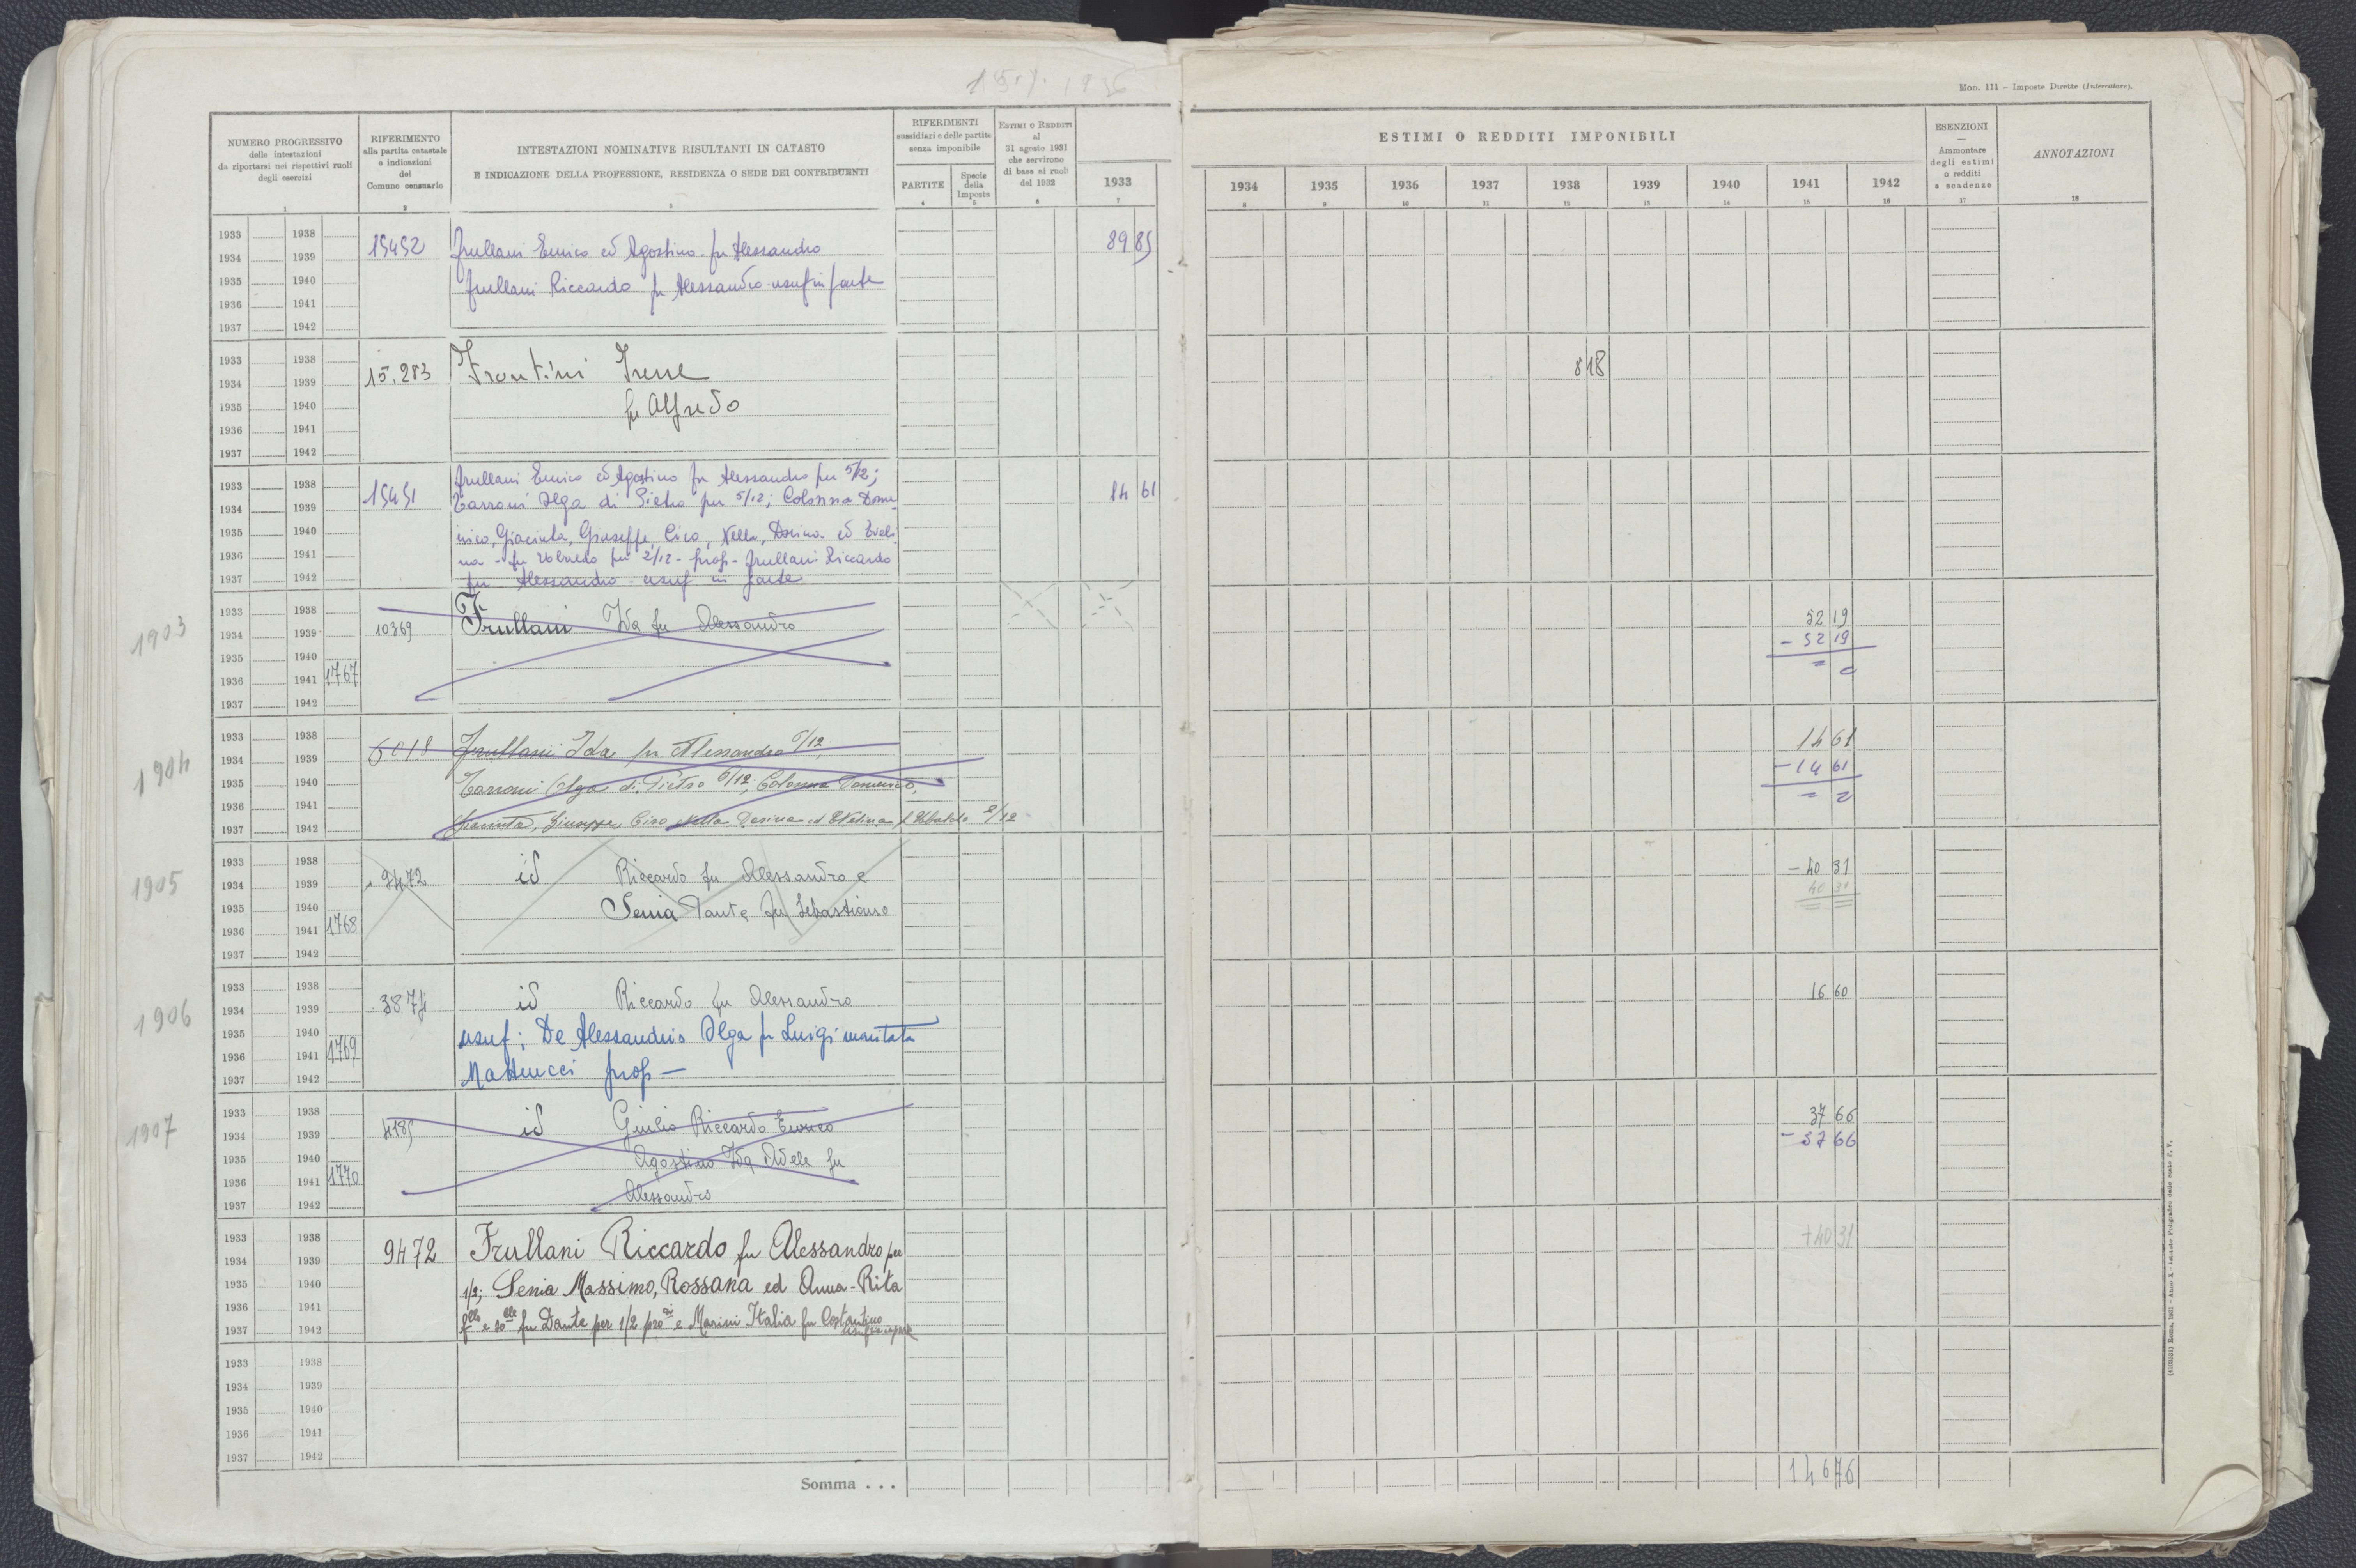 Mod. 111 – Imposte Dirette (Intercalare).
NUMERO PROGRESSIVO
delle intestazioni
da riportarsi nei rispettivi ruoli
degli esercizi
1
RIFERIMENTO
alla partita catastale
e indicazioni
del
Comune censuario
2
INTESTAZIONI NOMINATIVE RISULTANTI IN CATASTO
E INDICAZIONE DELLA PROFESSIONE, RESIDENZA O SEDE DEI CONTRIBUENTI
3
RIFERIMENTI
sussidiari e delle partite
senza imponibile
PARTITE
4
Specie
della
Imposta
5
ESTIMI O REDDITI
al
31 agosto 1931
che servirono
di base ai ruoli
del 1932
6
ESTIMI O REDDITI IMPONIBILI
1933
7
1934
8
1935
9
1936
10
1937
11
1938
12
1939
13
1940
14
1941
15
1942
16
ESENZIONI
Ammontare
degli estimi
o redditi
e scadenze
17
ANNOTAZIONI
18
1933 1938
1934 1939
1935 1940
1936 1941
1937 1942
15452
Frullani Enrico ed Agostino fu Alessandro
Frullani Riccardo fu Alessandro usuf in parte
89 85
1933 1938
1934 1939
1935 1940
1936 1941
1937 1942
15.283
Frontini Irene
fu Alfredo
8 18
1933 1938
1934 1939
1935 1940
1936 1941
1937 1942
15451
Frullani Enrico ed Agostino fu Alessandro per 5/12;
Tarroni Olga di Pietro per 5/12; Colonna Dome
nico, Giacinta, Giuseppe, Ciro, Nella, Dorina ed Eveli
na fu Ubaldo per 2/12 - prop - Frullani Riccardo
fu Alessandro usuf in parte
14 61
1903
1933 1938
1934 1939
1935 1940
1936 1941 1767
1937 1942
10369
Frullani Ida fu Alessandro
52 19
- 52 19
= =
1904
1933 1938
1934 1939
1935 1940
1936 1941
1937 1942
6018
Frullani Ida fu Alessandro 5/12;
Tarroni Olga di Pietro 5/12; Colonna Domenico,
Giacinta, Giuseppe, Ciro Nella Dorina ed Evelina f Ubaldo 2/12
14 61
- 14 61
= =
1905
1933 1938
1934 1939
1935 1940
1936 1941 1768
1937 1942
9472
id Riccardo fu Alessandro e
Senia Dante fu Sebastiano
- 40 31
40 31
1906
1933 1938
1934 1939
1935 1940
1936 1941 1769
1937 1942
3874
id Riccardo fu Alessandro
usuf; De Alessandris Olga fu Luigi maritata
Matteucci prop -
16 60
1907
1933 1938
1934 1939
1935 1940
1936 1941 1770
1937 1942
4185
id Giulio Riccardo Enrico
Agostino Ida Adele fu
Alessandro
37 66
- 37 66
1933 1938
1934 1939
1935 1940
1936 1941
1937 1942
9472
Frullani Riccardo fu Alessandro per
1/2; Senia Massimo, Rossana ed Anna-Rita
fllo e so lle fu Dante per 1/2 pro di e Marini Italia fu Costantino
+ 40 31
1933 1938
1934 1939
1935 1940
1936 1941
1937 1942
Somma . . .
146 76